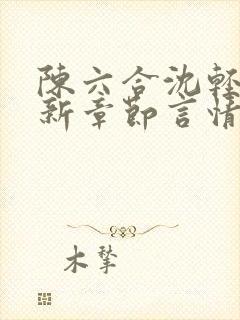 陳六合沈輕
新章節言情
木摯